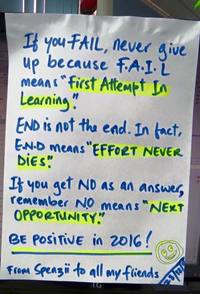 If you FAIL, never give
up because F.A.I.L
means "First Attempt In
Learning."
END is not the end. In fact,
E.N.D means "EFFORT NEVER
DIES."
If you get NO as an answer,
remember NO means "NEXT
OPPORTUNITY."
BE POSITIVE in 2016!
From Spenzii to all my friends